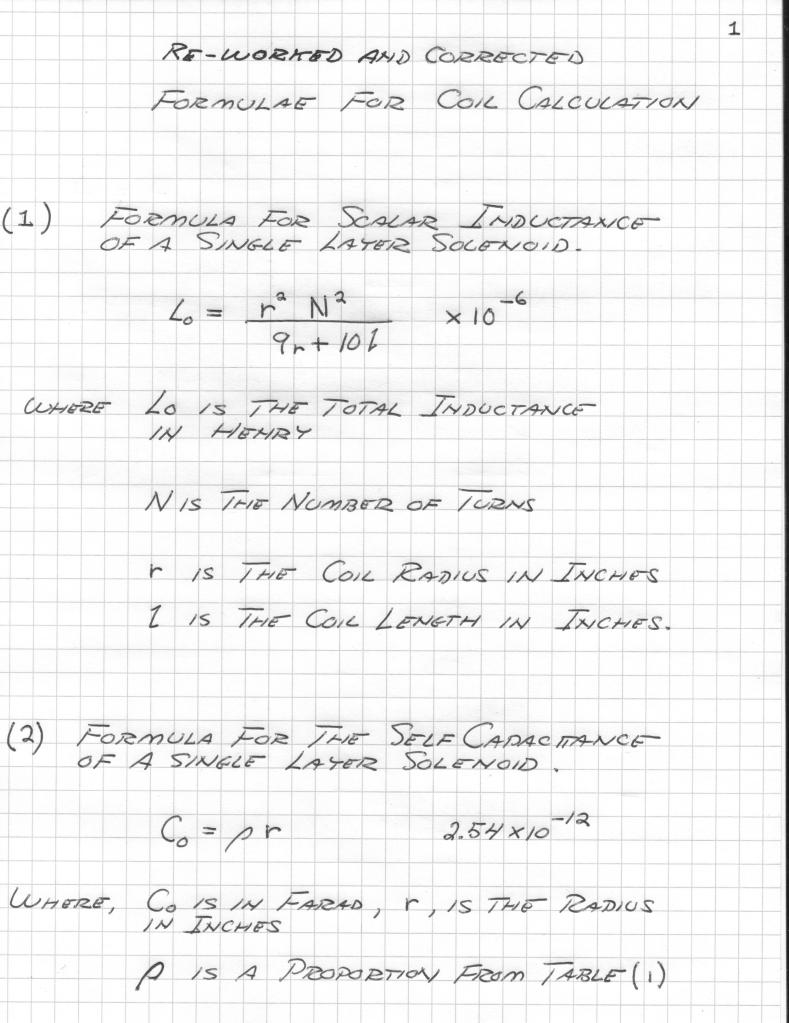 1
RE-WORKED AND CORRECTED
FORMULAE FOR COIL CALCULATION
(1) FORMULA FOR SCALAR INDUCTANCE
OF A SINGLE LAYER SOLENOID.
L₀ = r² N² / 9r + 10l × 10⁻⁶
WHERE L₀ IS THE TOTAL INDUCTANCE
IN HENRY
N IS THE NUMBER OF TURNS
r IS THE COIL RADIUS IN INCHES
l IS THE COIL LENGTH IN INCHES.
(2) FORMULA FOR THE SELF CAPACITANCE
OF A SINGLE LAYER SOLENOID.
C₀ = ρ r 2.54 × 10⁻¹²
WHERE, C₀ IS IN FARAD, r, IS THE RADIUS
IN INCHES
ρ IS A PROPORTION FROM TABLE (1)